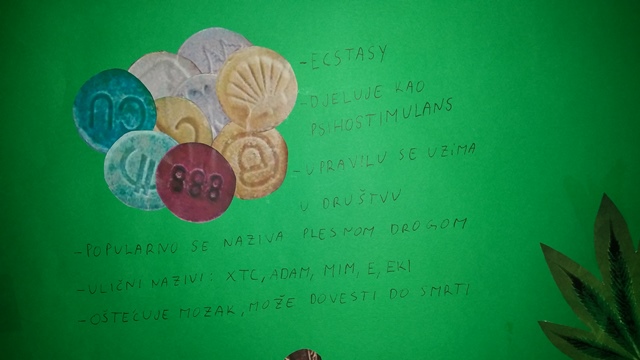 -ECSTASY
-DJELUJE KAO
PSIHOSTIMULANS
-UPRAVILU SE UZIMA
U DRUŠTVU
-POPULARNO SE NAZIVA PLESNOM DROGOM
-ULIČNI NAZIVI: XTC, ADAM, MIM, E, EKI
-OŠTEĆUJE MOZAK, MOŽE DOVESTI DO SMRTI
888